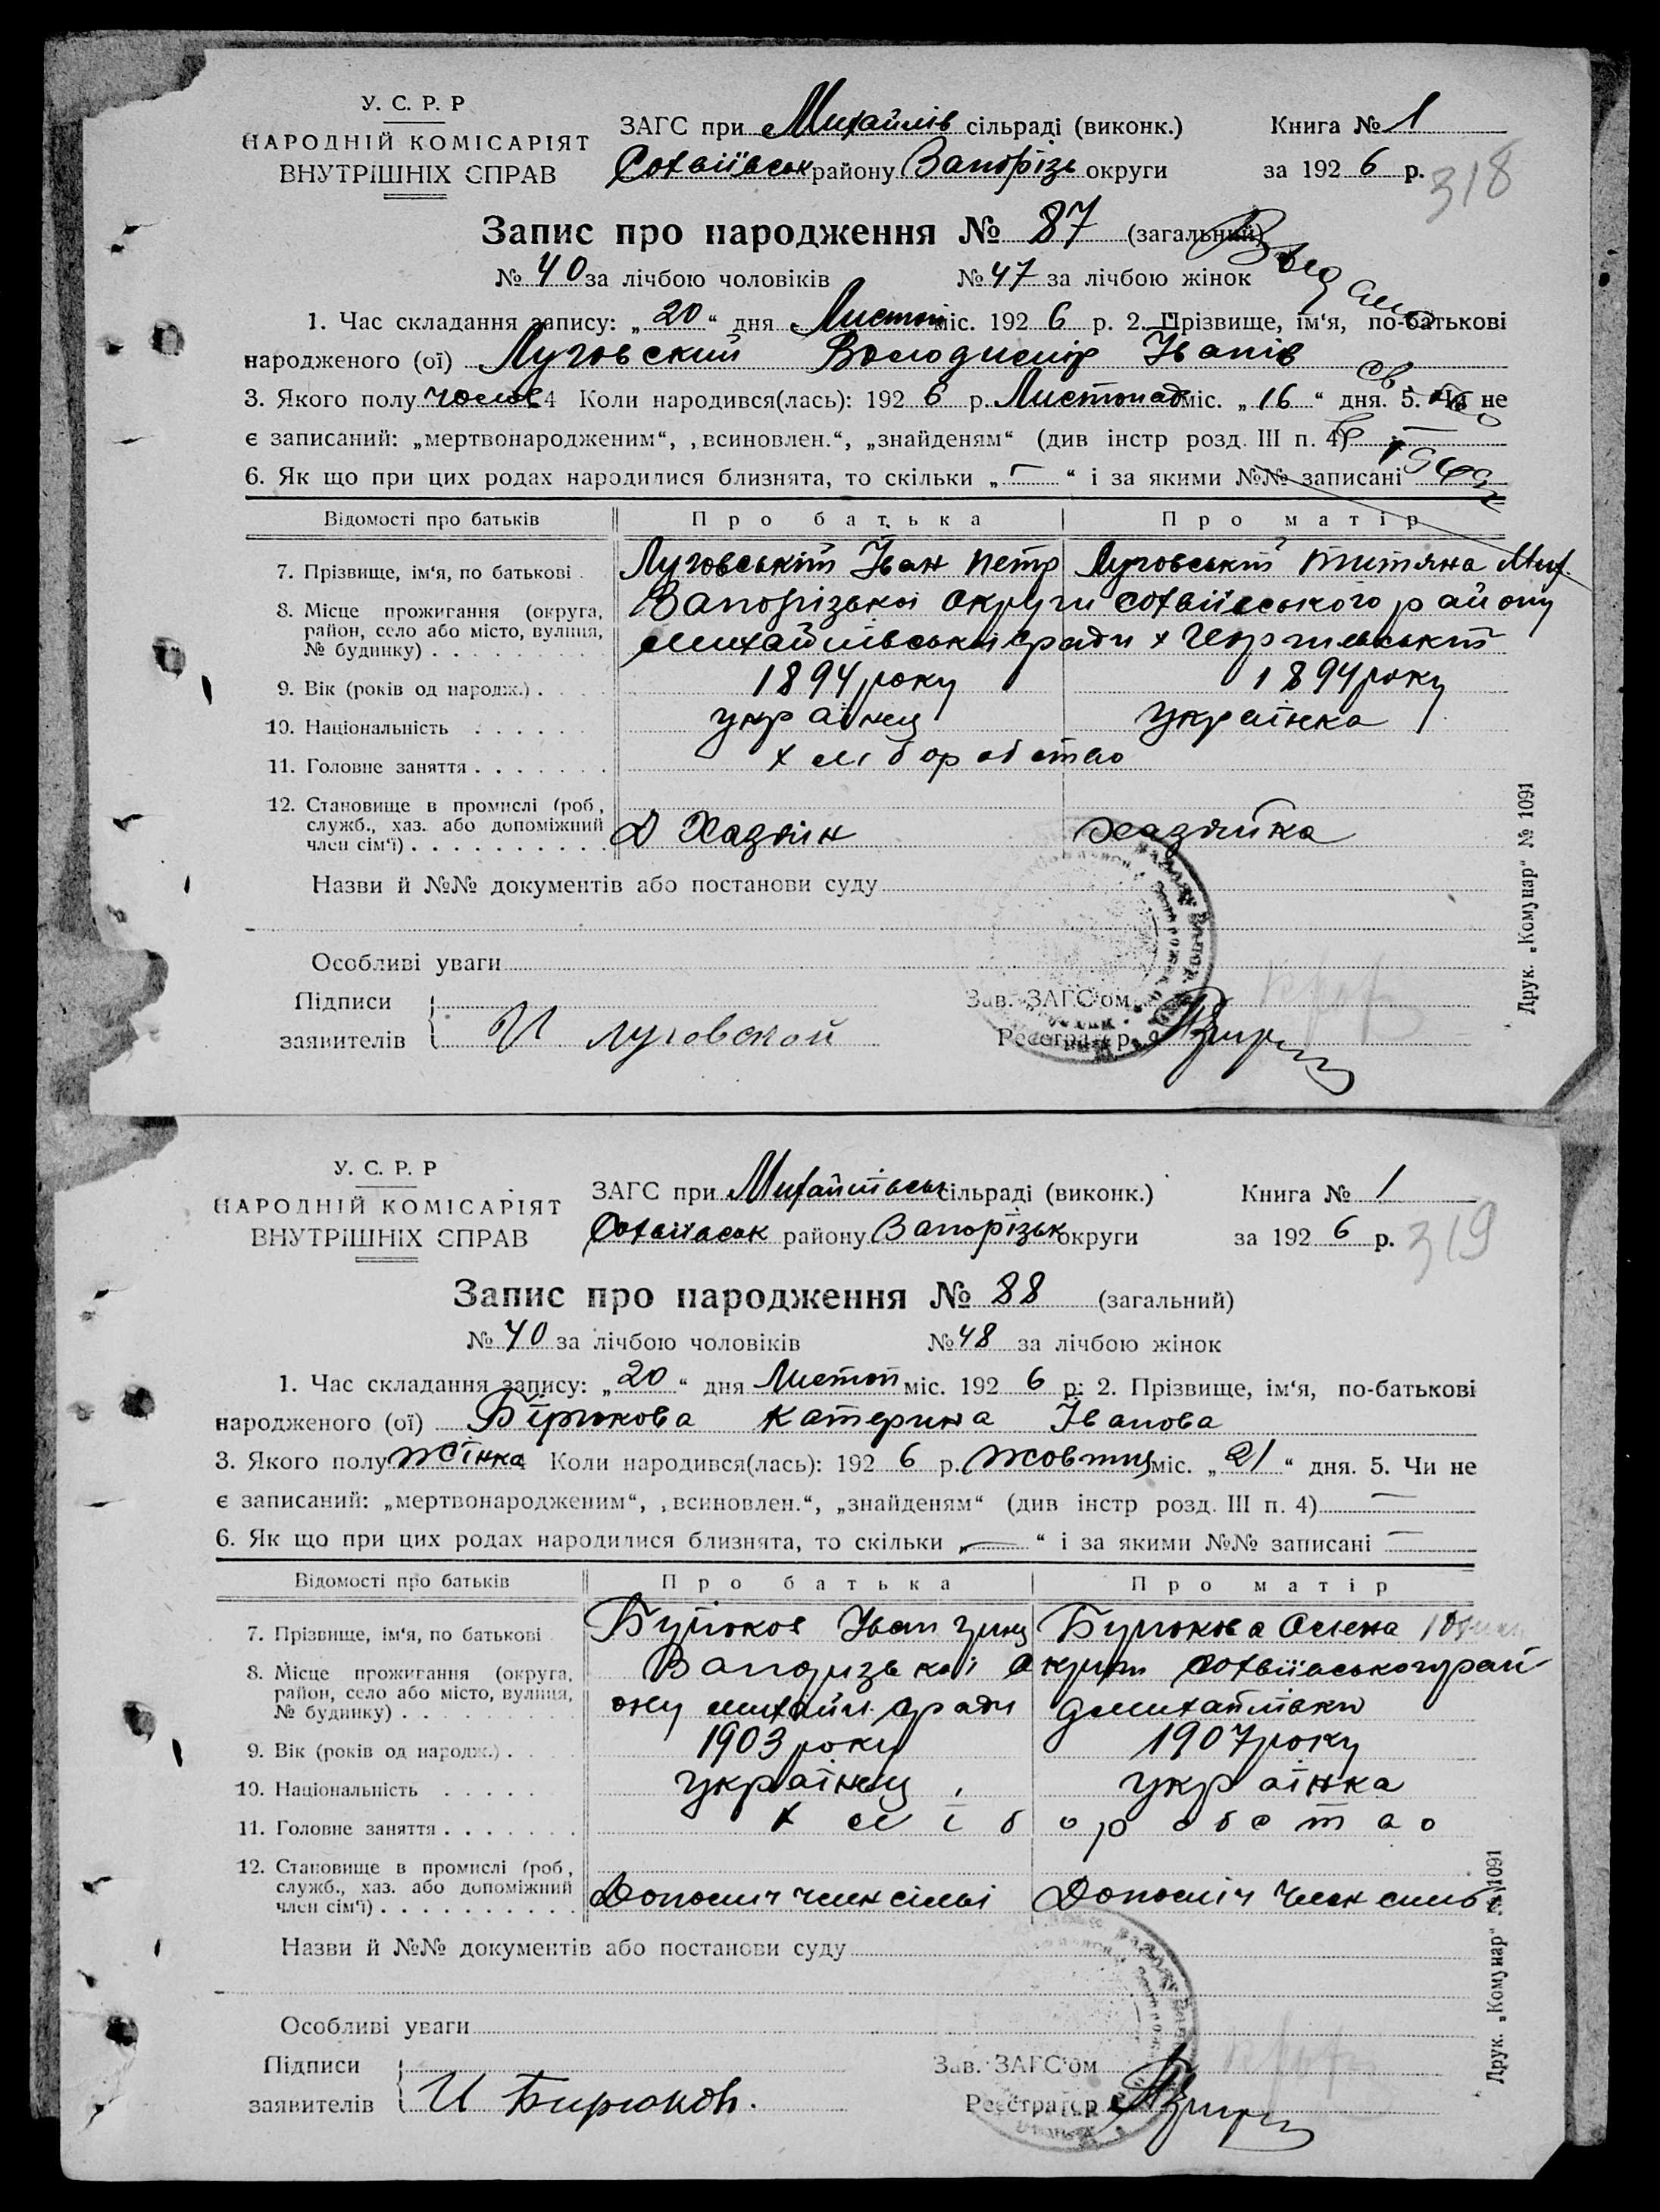 У. С. Р. Р
НАРОДНІЙ КОМІСАРІЯТ
ВНУТРІШНІХ СПРАВ
ЗАГС при Михайлів сільраді (виконк.) Книга № 1
Софіївськ району Запоріз округи за 192 6 р.
318
Запис про народження № 87 (загальний)
№ 40 за лічбою чоловіків № 47 за лічбою жінок
1. Час складання запису: „ 20 “ дня Листоп міс. 192 6 р. 2. Прізвище, ім‘я, по-батькові
народженого (ої) Луговский Володимір Іванів
3. Якого полу чолов 4 Коли народився(лась): 192 6 р. Листопад міс. „ 16 “ дня. 5. Чи не
є записаний: „мертвонародженим“, „всиновлен.“, „знайденям“ (див інстр розд. III п. 4) —
6. Як що при цих родах народилися близнята, то скільки „ — “ і за якими №№ записані
Відомості про батьків Про батька Про матір
7. Прізвище, ім‘я, по батькові . Луговській Іван Петр Луговській Титяна Миф.
8. Місце прожигання (округа, район, село або місто, вулиця, № будинку) Запорізькоі округи Софіївського району
Михайлівськи ради х
9. Вік (років од народж.) . 1894 року 1894 року
10. Національність украінец украінка
11. Головне заняття . хліборобство
12. Становище в промислі (роб, служб., хаз. або допоміжний член сім‘ї) . Д Хазяін хазяйка
Назви й №№ документів або постанови суду
Особливі уваги
Підписи заявителів И Луговской
Зав. ЗАГС‘ом
Реєстратор
Друк. „Комунар“ № 1091
У. С. Р. Р
НАРОДНІЙ КОМІСАРІЯТ
ВНУТРІШНІХ СПРАВ
ЗАГС при Михайлівськ сільраді (виконк.) Книга № 1
Софіївськ району Запорізьк округи за 192 6 р.
319
Запис про народження № 88 (загальний)
№ 40 за лічбою чоловіків № 48 за лічбою жінок
1. Час складання запису: „ 20 “ дня Листоп міс. 192 6 р. 2. Прізвище, ім‘я, по-батькові
народженого (ої) Бірюкова Катерина Іванова
3. Якого полу жінка 4 Коли народився(лась): 192 6 р. жовтня міс. „ 21 “ дня. 5. Чи не
є записаний: „мертвонародженим“, „всиновлен.“, „знайденям“ (див інстр розд. III п. 4) —
6. Як що при цих родах народилися близнята, то скільки „ — “ і за якими №№ записані —
Відомості про батьків Про батька Про матір
7. Прізвище, ім‘я, по батькові Бурюков Іван Бурюкова Олена
8. Місце прожигання (округа, район, село або місто, вулиця, № будинку) Запоризькоі округи Софіївського рай
ону михайл. ради Михайлівки
9. Вік (років од народж.) . 1903 року 1907 року
10. Національність украінец украінка
11. Головне заняття . хліборобство
12. Становище в промислі (роб, служб., хаз. або допоміжний член сім‘ї) . Допоміч член сімьі Допоміч член симь
Назви й №№ документів або постанови суду
Особливі уваги
Підписи заявителів И Бирюков.
Зав. ЗАГС‘ом
Реєстратор
Друк. „Комунар“ № 1091